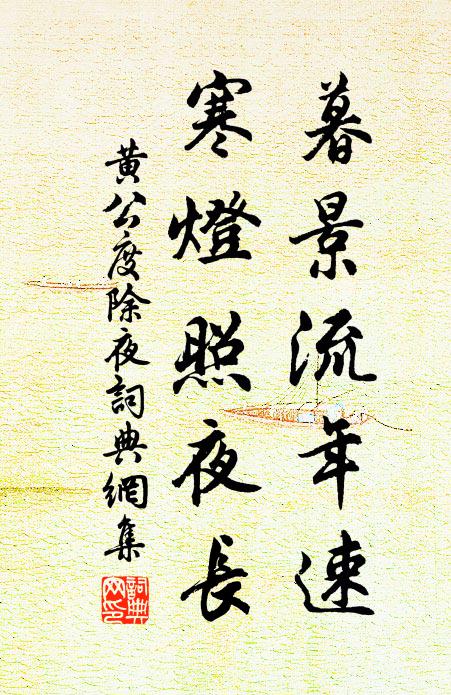 暮景流年速
寒燈照夜長
黃公度除夜詞典網集
詞典網印